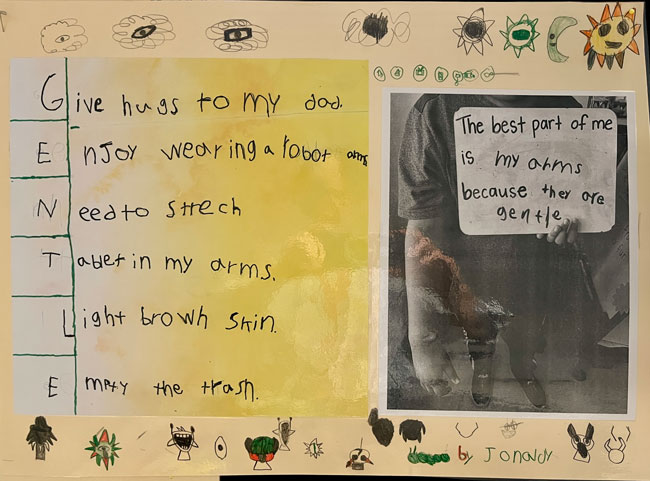 Give hugs to my dad.
Enjoy wearing a robot arms
Need to strech
Tablet in my arms.
Light brown skin.
Empty the trash.
The best part of me
is my arms
because they are
gentle
by Jonardy